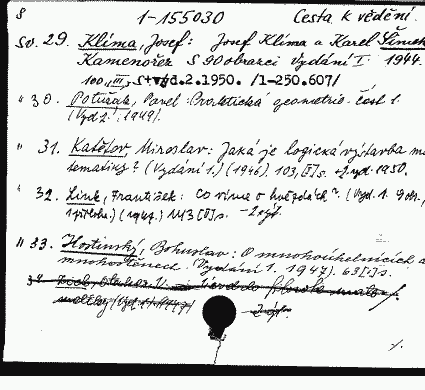 S 1-155030 Cesta k vědění.
Sv. 29. Klíma, Josef: Josef Klíma a Karel Šimek
Kamenořez S 90 obrazci Vydání I 1944.
100, III, S+vyd.2.1950. /1-250.607/
" 30. Potůček, Pavel: Praktická geometrie. část 1.
(Vyd 2. 1949).
" 31. Katětov, Miroslav: Jaká je logická výstavba ma
tematiky? (Vydání 1.) (1946). 103, [I] s. +2. vyd. 1950.
" 32. Link, František: Co víme o hvězdách? (Vyd. 1. 9 obr.,
1 příloha.) (1947.) 143 [I] s. - 2 vyd.
" 33. Hostinský, Bohuslav: O mnohoúhelnících a
mnohostěnech. Vydání 1. 1947). 63 [I] s.
34 Úvod do
(Vyd. 1.) (1947)
./.